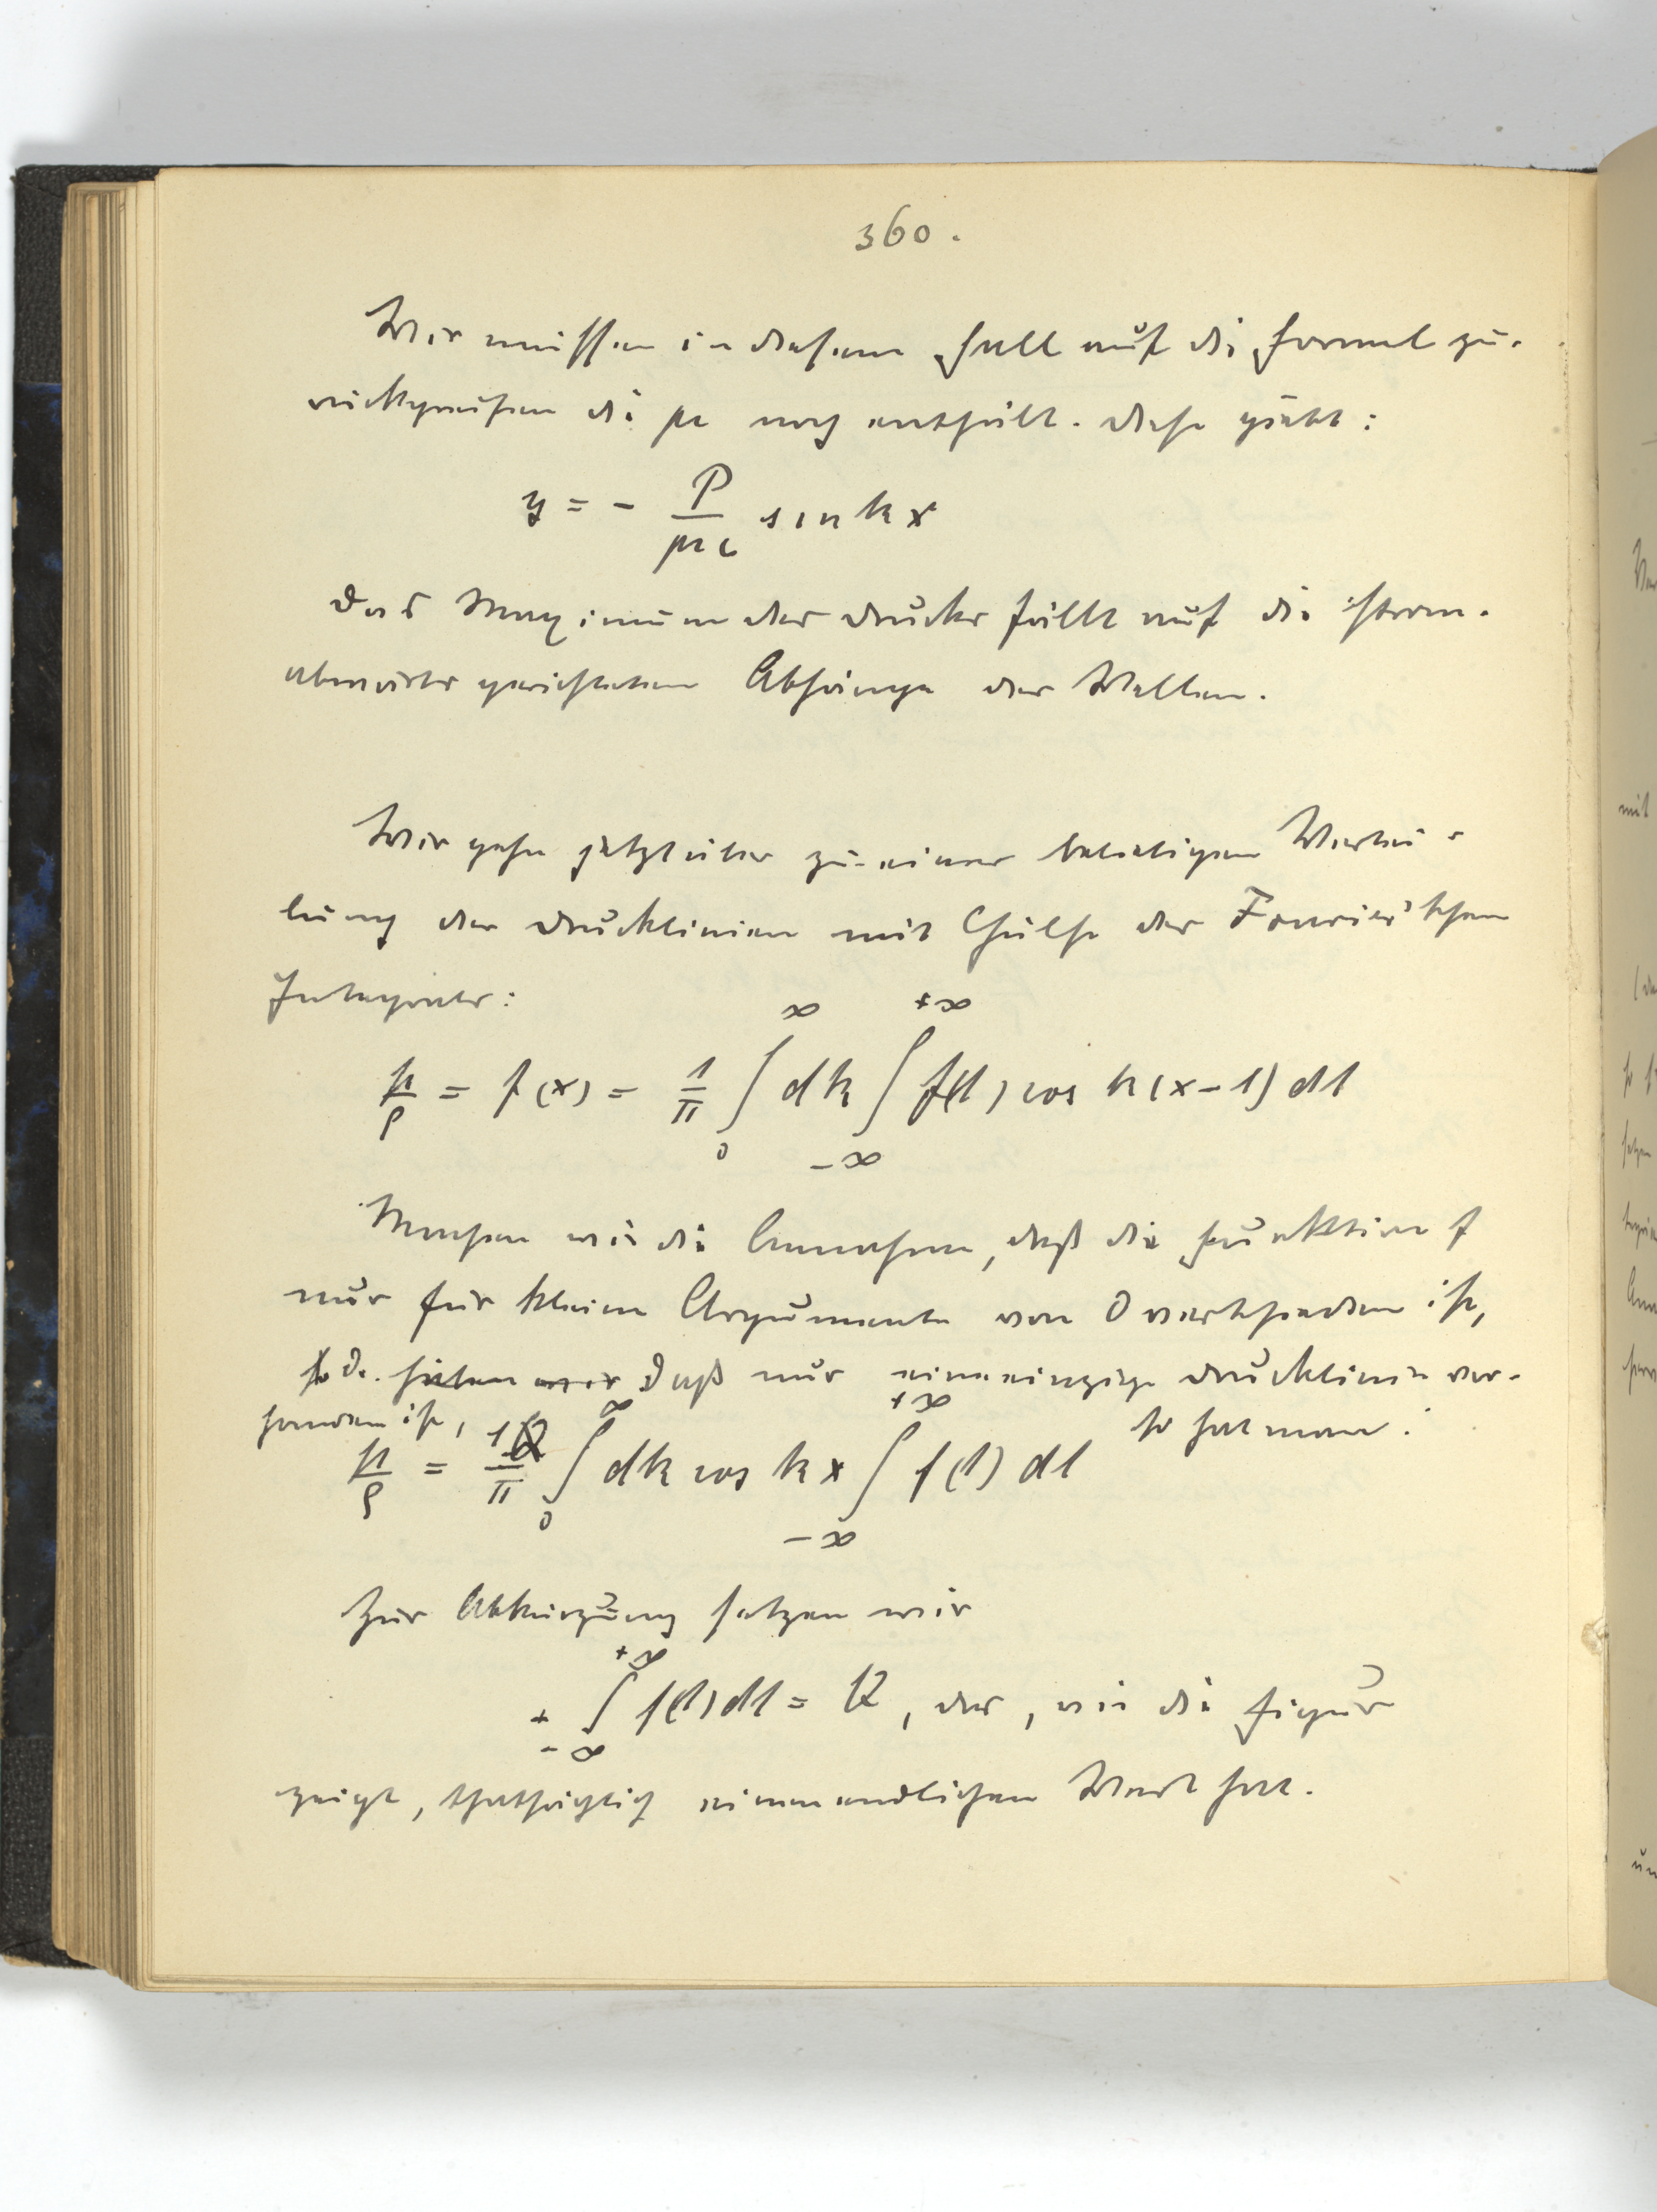 360.
Wir müssen in diesem Fall auf die Formel zu-
rückgreifen die μ noch enthält. Diese giebt:
y = - P/μc sin kx
Das Maximum des Druckes fällt auf die strom-
abwärts gerichteten Abhänge der Wellen.
Wir gehn jetzt über zu einer beliebigen Vertei-
lung der Drucklinien mit Hülfe des Fourier'schen
Integrals:
p/ρ = f(x) = 1/π ∫₀^∞ dk ∫_{-∞}^{+∞} f(λ) cos k(x-λ) dλ
Machen wir die Annahme, daß die Funktion f
nur für kleine Argumente von 0 verschieden ist,
d. daß nur eine einzige Drucklinie vor-
handen ist, so hat man:
p/ρ = 1/π ∫₀^∞ dk cos kx ∫_{-∞}^{+∞} f(λ) dλ
Zur Abkürzung setzen wir
+ ∫_{-∞}^{+∞} f(λ) dλ = Q, das, wie die Figur
zeigt, thatsächlich einen endlichen Wert hat.